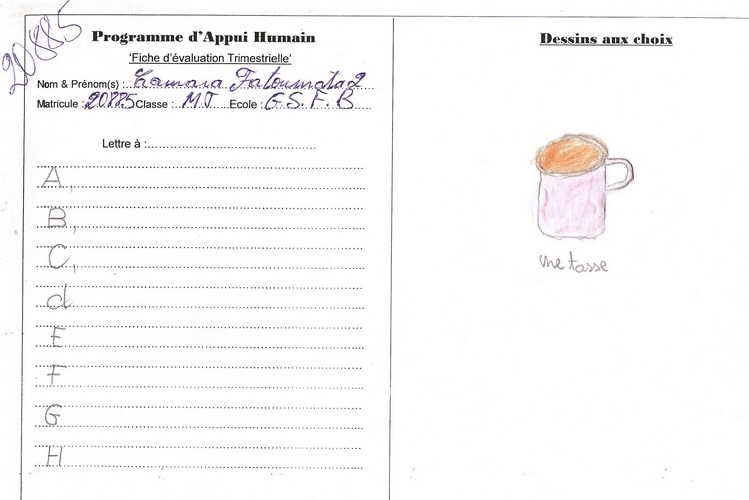 20885
Programme d'Appui Humain
'Fiche d'évaluation Trimestrielle'
Nom & Prénom(s) : Camara Fatoumata 2
Matricule : 20885 Classe : MJ Ecole : G.S.F.B
Lettre à :
A,
B,
C,
d
E
F
G
H
Dessins aux choix
une tasse